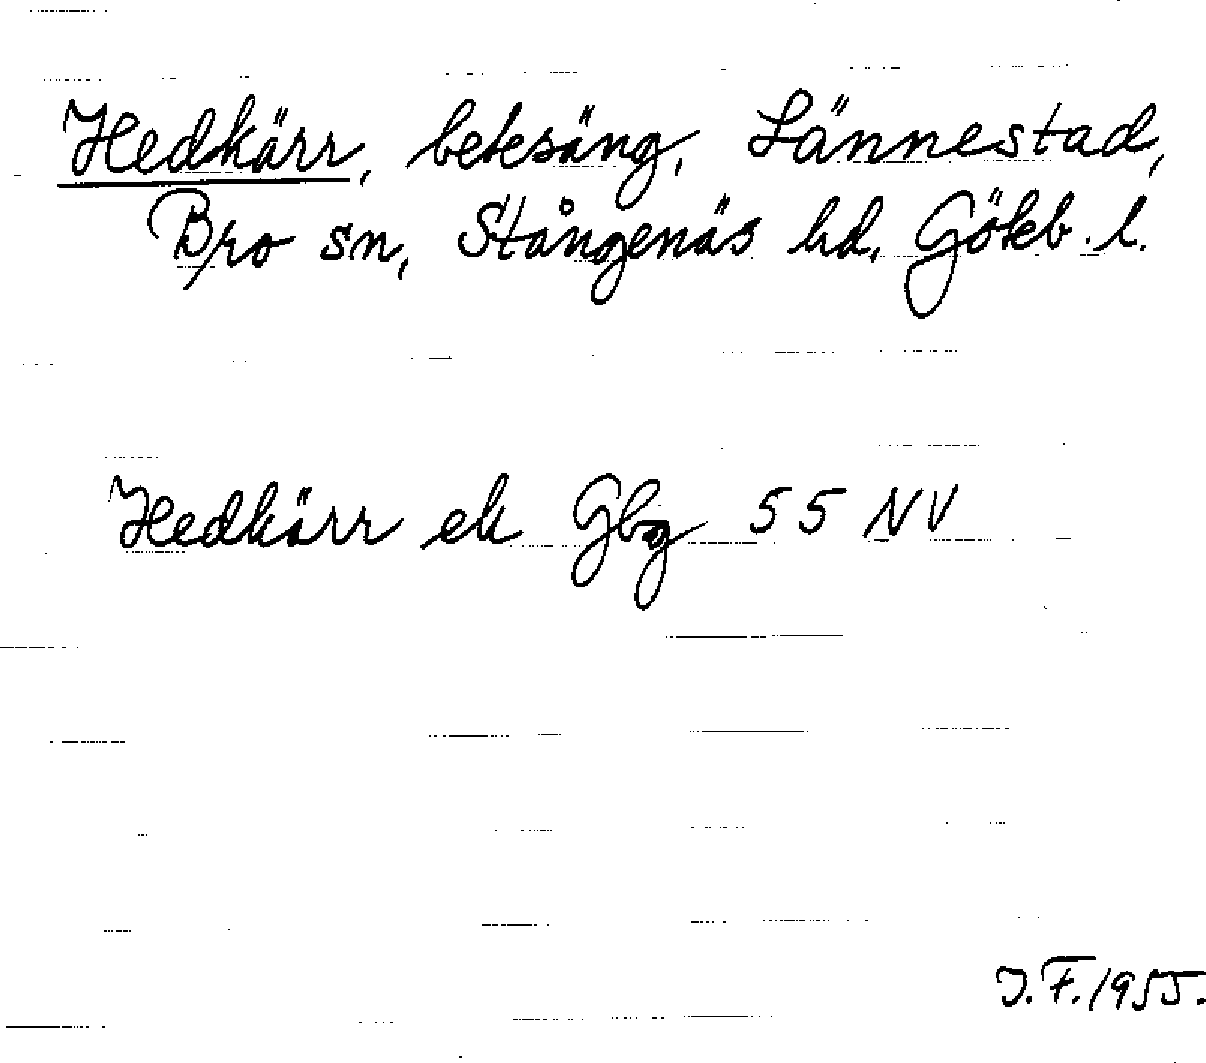 Hedkärr, betesäng, Lännestad,
Bro sn, Stångenäs hd, Göteb. l.
Hedkärr ek Gbg 55 NV
J. F. 1955.